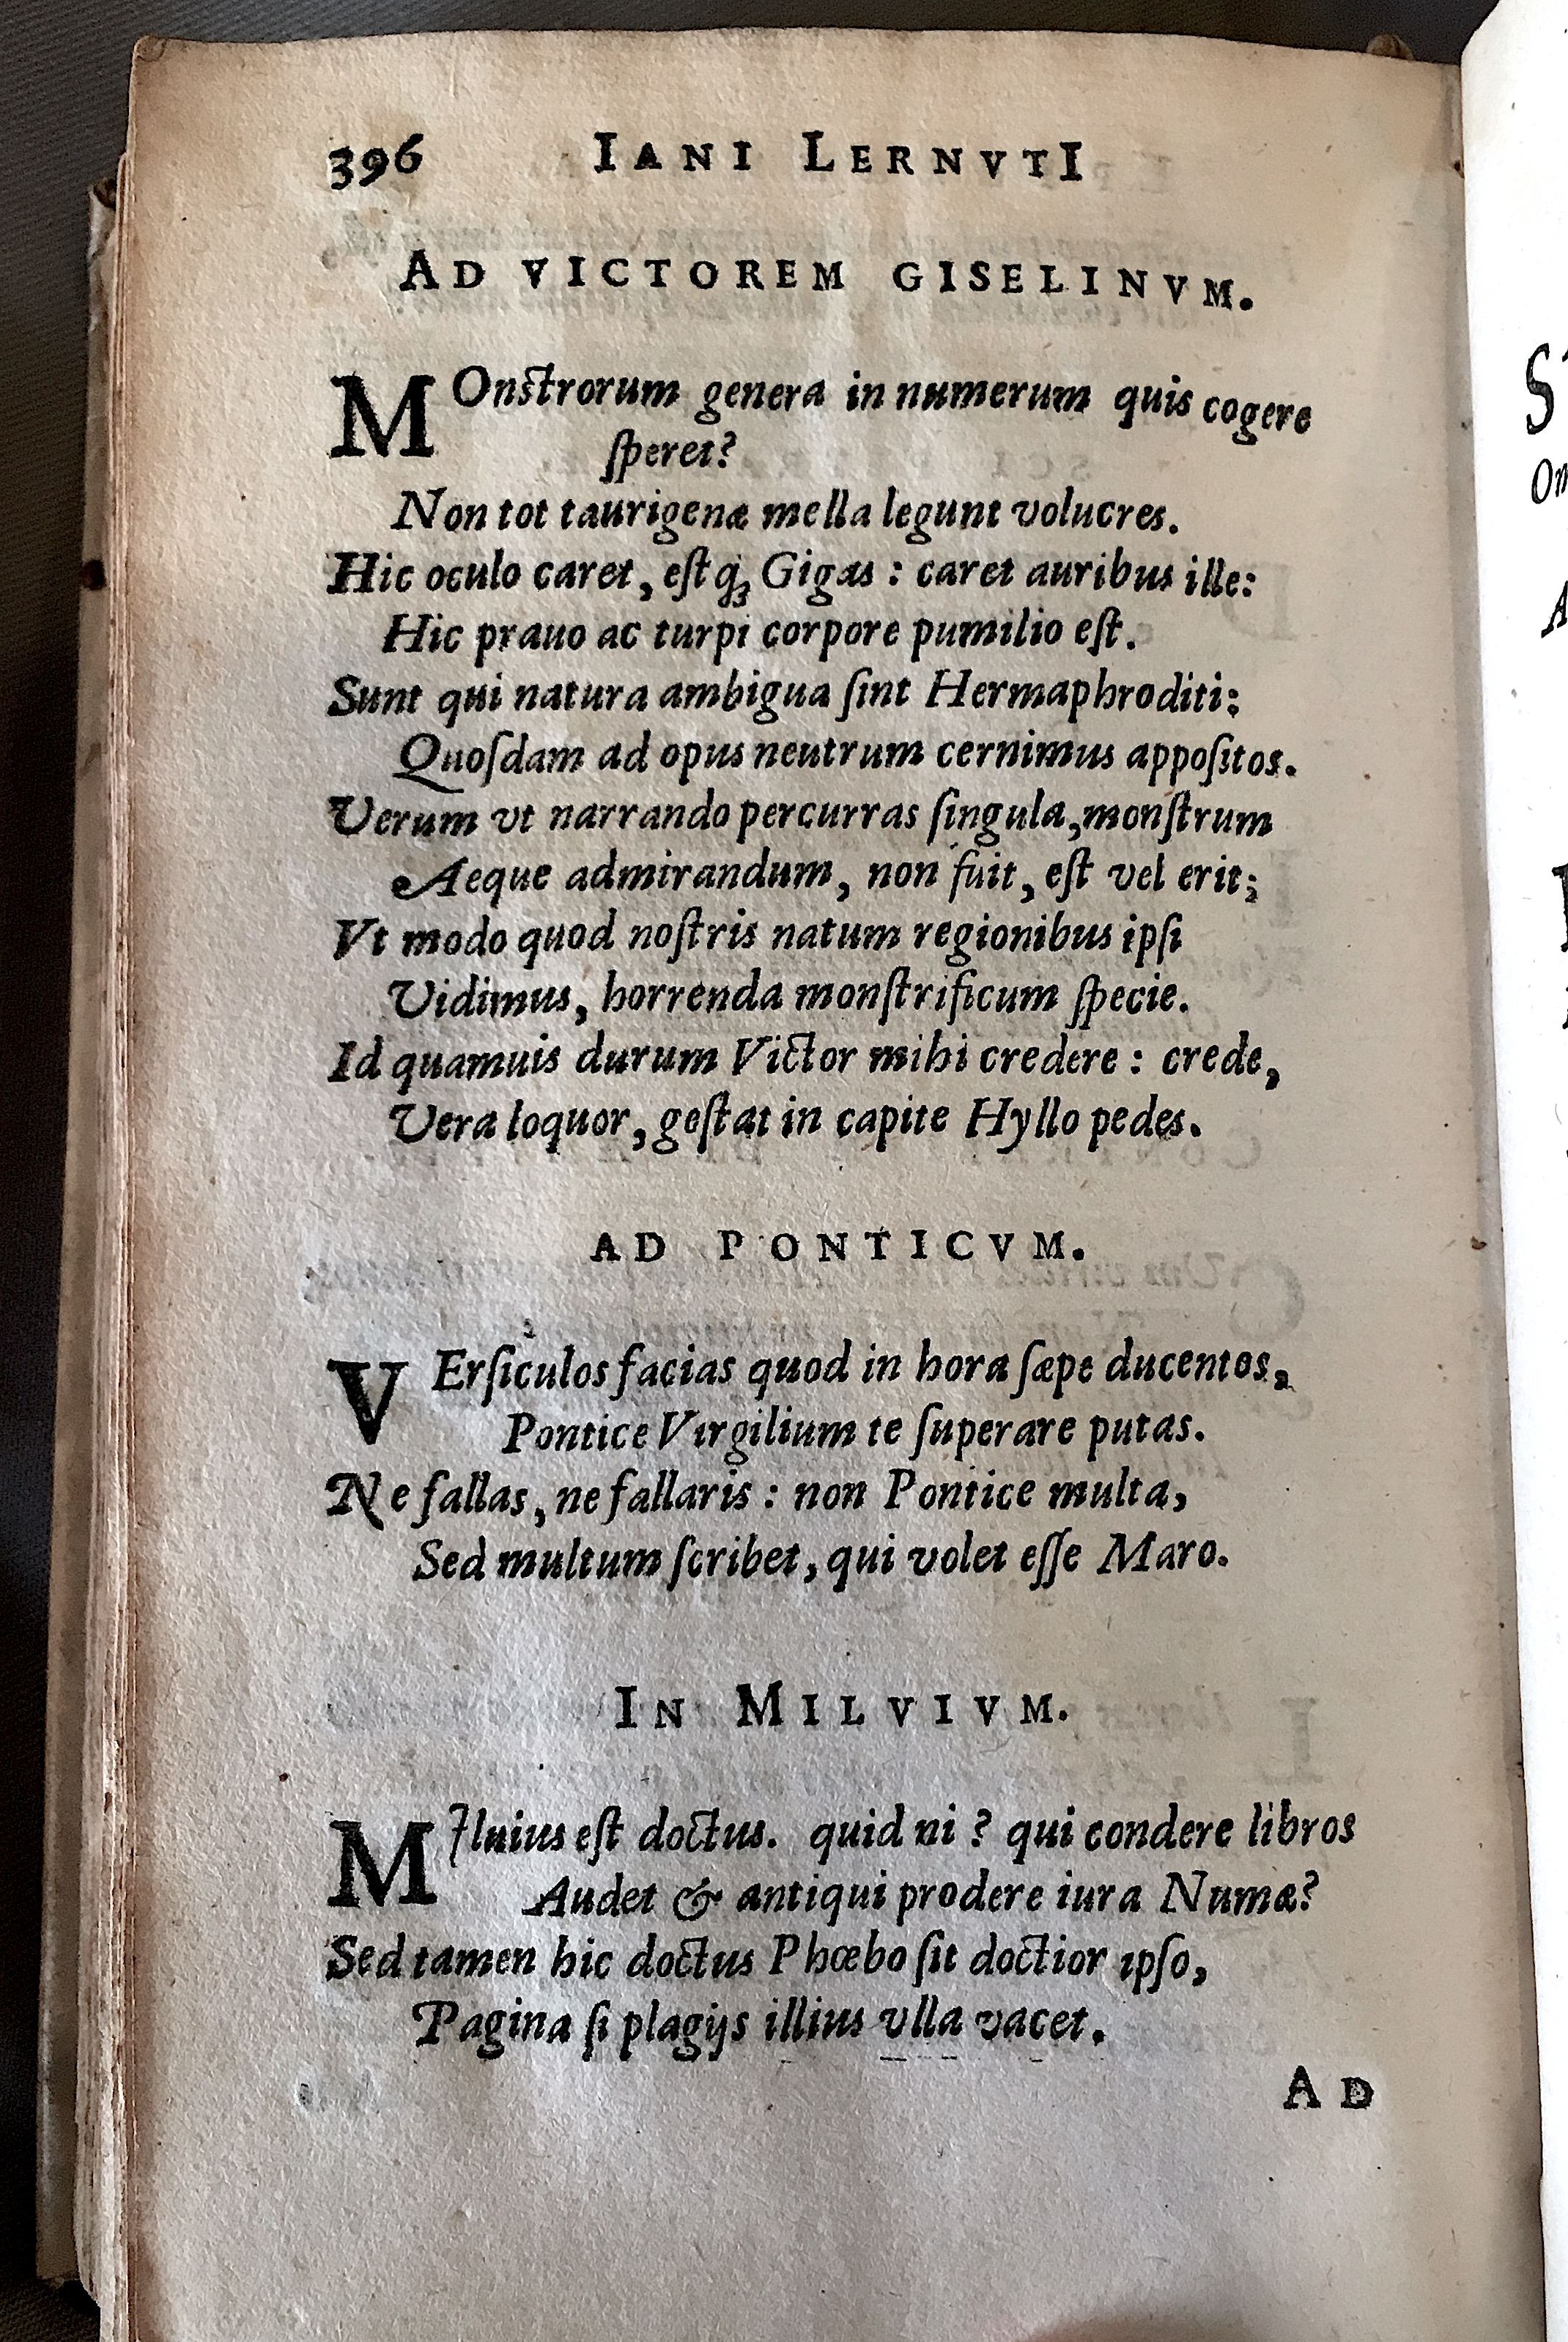 396 IANI LERNVTI
AD VICTOREM GISELINVM.
MOnstrorum genera in numerum quis cogere
ſperet?
Non tot taurigenæ mella legunt volucres.
Hic oculo caret, eſtq́ꝫ Gigas : caret auribus ille:
Hic prauo ac turpi corpore pumilio eſt.
Sunt qui natura ambigua ſint Hermaphroditi;
Quoſdam ad opus neutrum cernimus appoſitos.
Verum vt narrando percurras ſingula, monſtrum
Aeque admirandum, non fuit, eſt vel erit;
Vt modo quod noſtris natum regionibus ipſi
Vidimus, horrenda monſtrificum ſpecie.
Id quamuis durum Victor mihi credere : crede,
Vera loquor, geſtat in capite Hyllo pedes.
AD PONTICVM.
VErſiculos facias quod in hora ſæpe ducentos,
Pontice Virgilium te ſuperare putas.
Ne fallas, ne fallaris : non Pontice multa,
Sed multum ſcribet, qui volet eſſe Maro.
IN MILVIVM.
MIluius eſt doctus. quid ni ? qui condere libros
Audet & antiqui prodere iura Numæ?
Sed tamen hic doctus Phœbo ſit doctior ipſo,
Pagina ſi plagijs illius vlla vacet.
AD